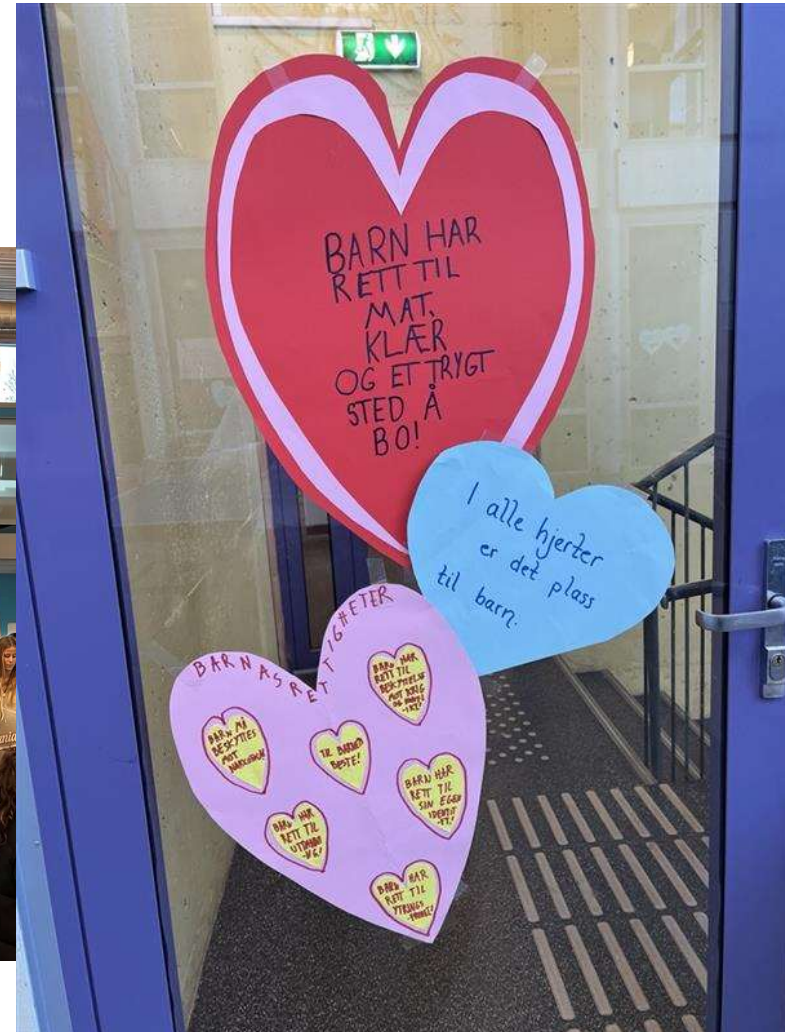 BARN HAR
RETT TIL
MAT,
KLÆR
OG ET TRYGT
STED Å
BO!
I alle hjerter
er det plass
til barn.
BARNAS RETTIGHETER
BARN HAR
RETT TIL
BESKYTTELSE
MOT KRIG
BARN MÅ
BESKYTTES
MOT
TIL BARNETS
BESTE!
BARN HAR
RETT TIL
SIN EGEN
IDENTIT
-ET!
BARN HAR
RETT TIL
UTDANN
-ING!
BARN HAR
RETT TIL
YTRINGS